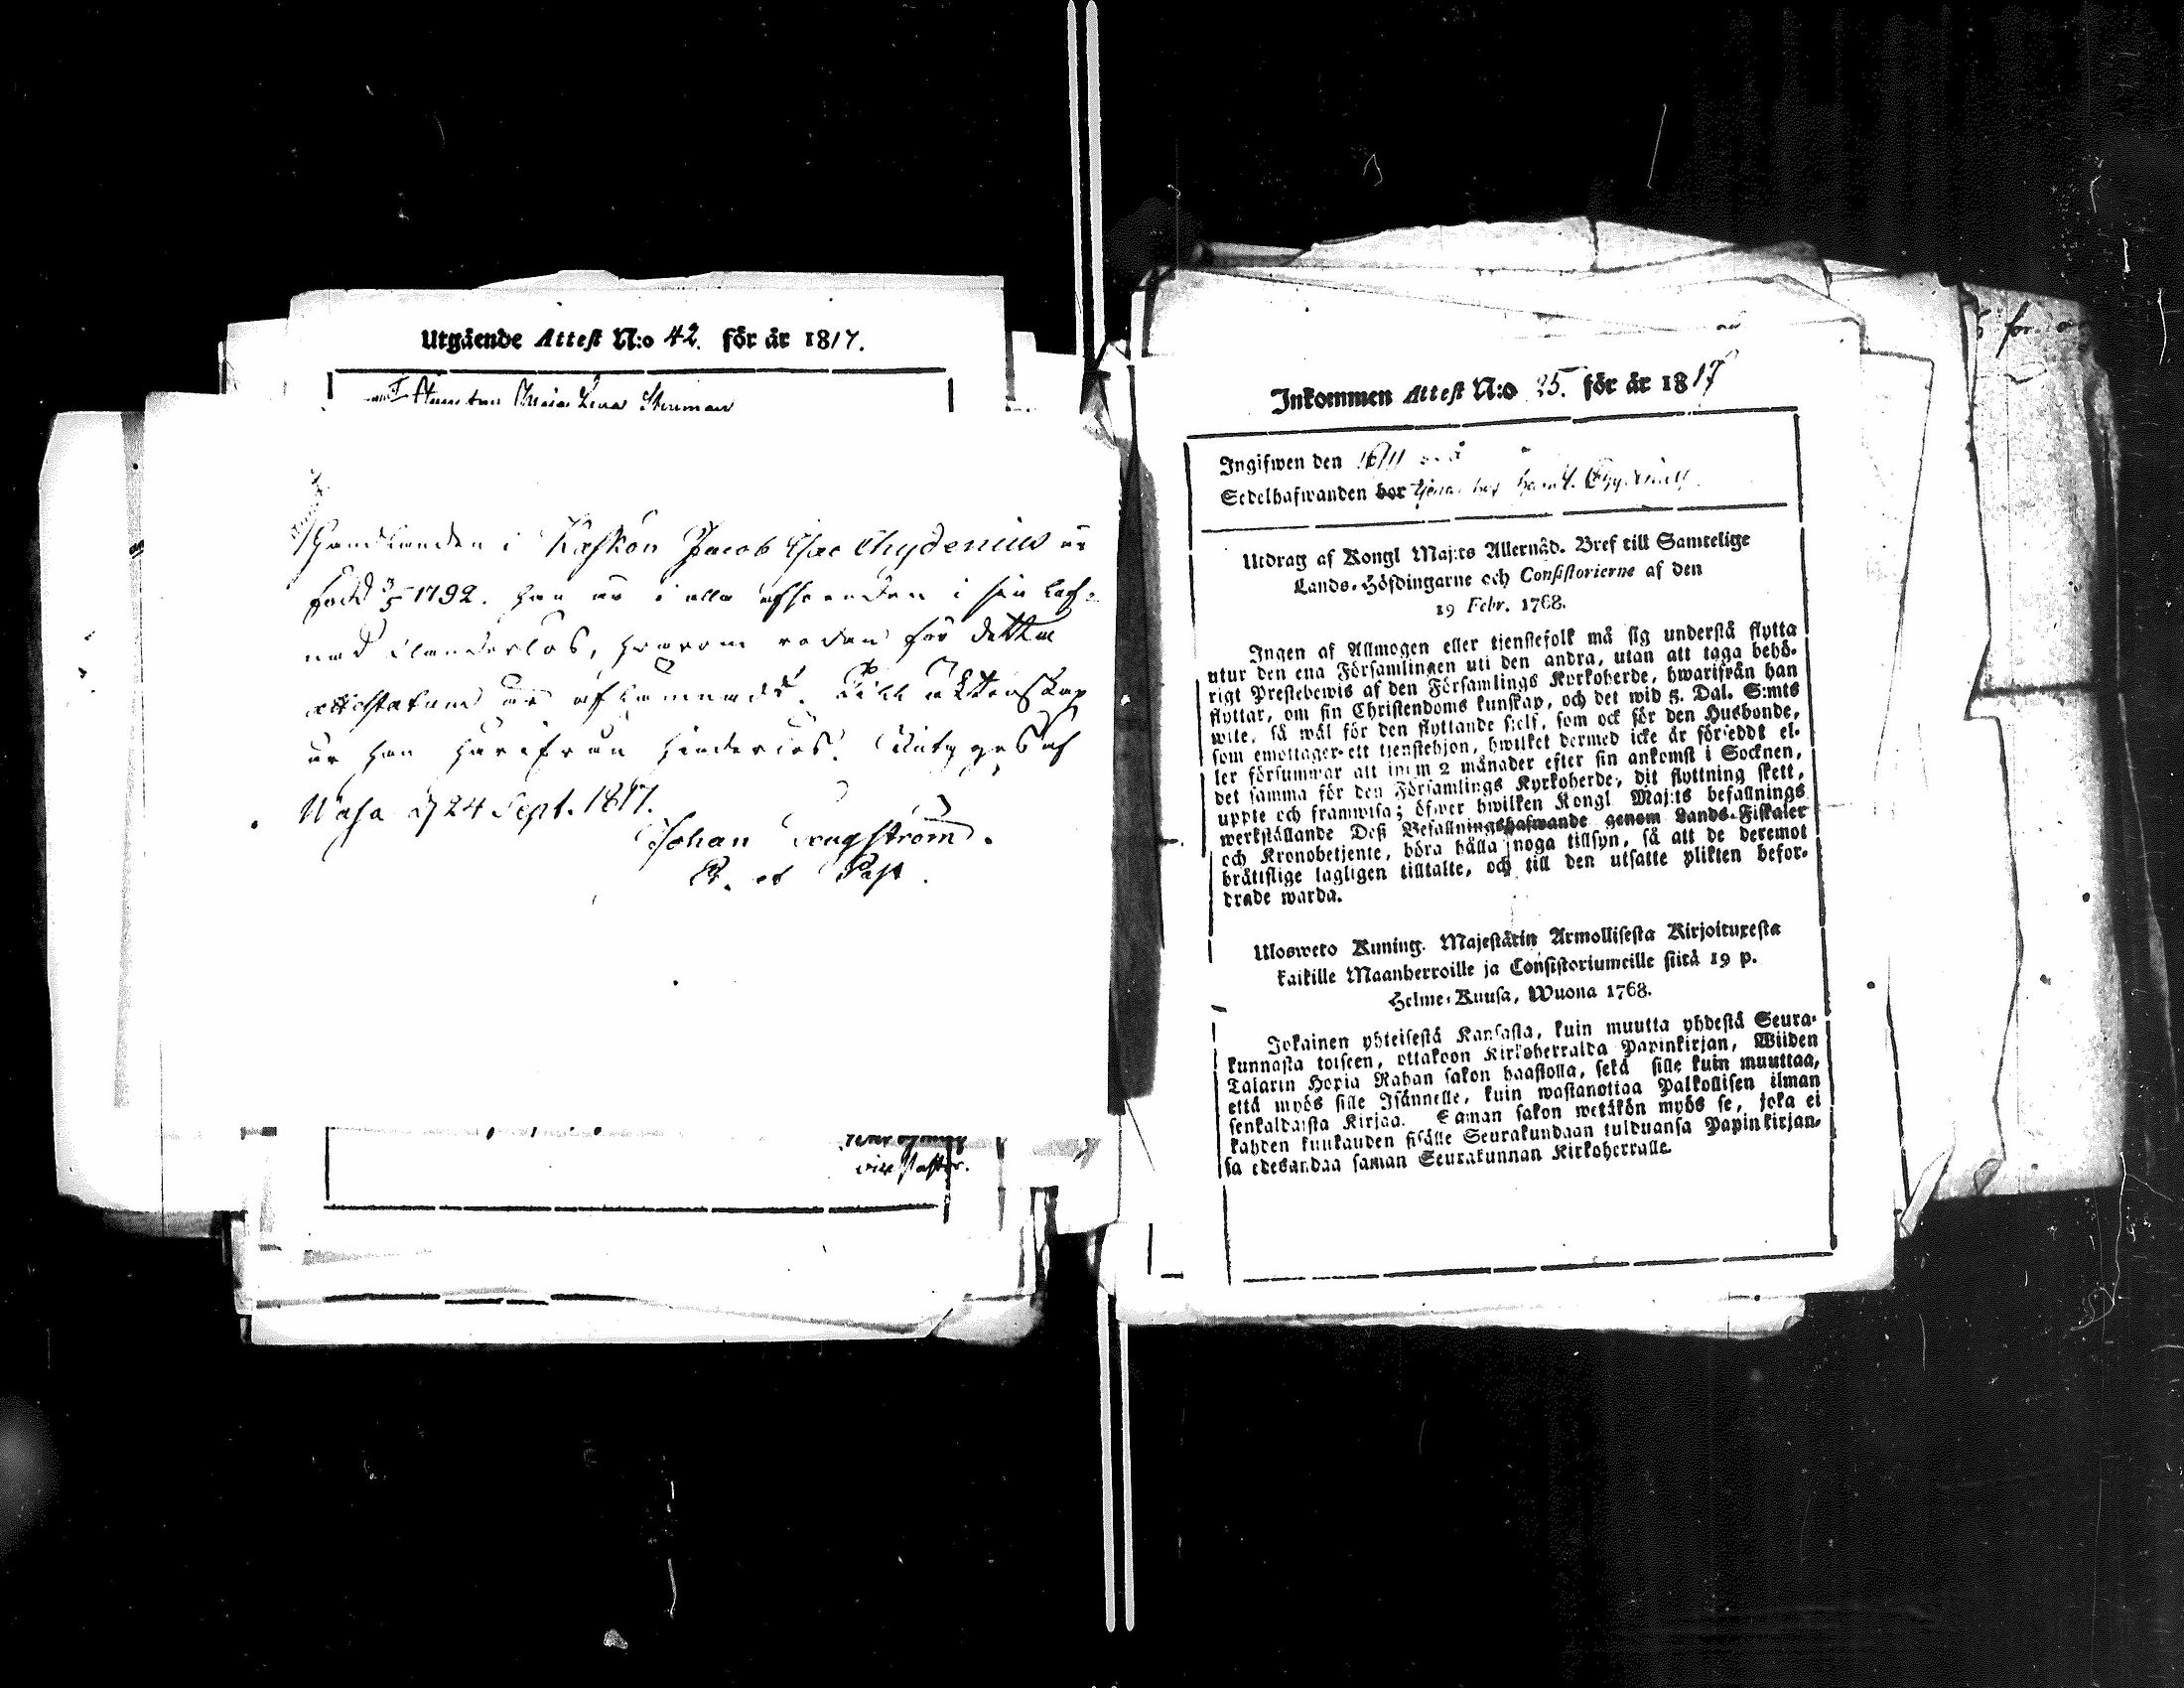 Utgående Attest N:o 42. för år 1817.
Maria Lena
Handlanden i Kaskön Jacob Isac Chydenius är
född 3/5 1792. Han är i alla afseenden i sin lef-
nad oklanderlös, hvarom redan för detta
attestatum är aflemnadt. Till äktenskap
är han härifrån hinderlös. Intygas af
Wasa d 24 Sept. 1817.
Johan
P. et Past.
Inkommen Attest N:o 25. för år 1817
Ingifwen den
Sedelhafwanden bor hos Handl. Chydenius
Utdrag af Kongl Maj:ts Allernåd. Bref till Samtelige
Lands-Höfdingarne och Consistorierne af den
19 Febr. 1768.
Ingen af Allmogen eller tienstefolk må sig understå flytta
utur den ena Församlingen uti den andra, utan att taga behö-
rigt Prestebewis af den Församlings Kyrkoherde, hwarifrån han
flyttar, om sin Christendoms kunskap, och det wid 5. Dal. S:mts
wite, så wäl för den flyttande sielf, som ock för den Husbonde,
som emottager ett tienstehjon, hwilket dermed icke är förseddt el-
ler försummar att inom 2 månader efter sin ankomst i Socknen,
det samma för den Församlings Kyrkoherde, dit flyttning skett,
uppte och framwisa; öfwer hwilken Kongl Maj:ts befallnings
werkställande Deß Befallningshafwande genom Lands-Fiskaler
och Kronobetjente, böra hålla noga tillsyn, så att de deremot
bråttslige lagligen tilltalte, och till den utsatte plikten befor-
drade warda.
Ulosweto Kuning. Majestätin Armollisesta Kirjoituxesta
kaikille Maanherroille ja Consistoriumeille siitä 19 p.
Helme-Kuusa, Wuona 1768.
Jokainen yhteisestä Kansasta, kuin muutta yhdestä Seura-
kunnasta toiseen, ottakoon Kirkoherralda Papinkirjan, Wiiden
Talarin Hopia Rahan sakon haastolla, sekä sille kuin muuttaa,
että myös sille Isännelle, kuin wastanottaa Palkollisen ilman
senkaldaista Kirjaa. Saman sakon wetäkön myös se, joka ei
kahden kuukauden sisälle Seurakundaan tulduansa Papinkirjan-
sa edesandaa saman Seurakunnan Kirkoherralle.